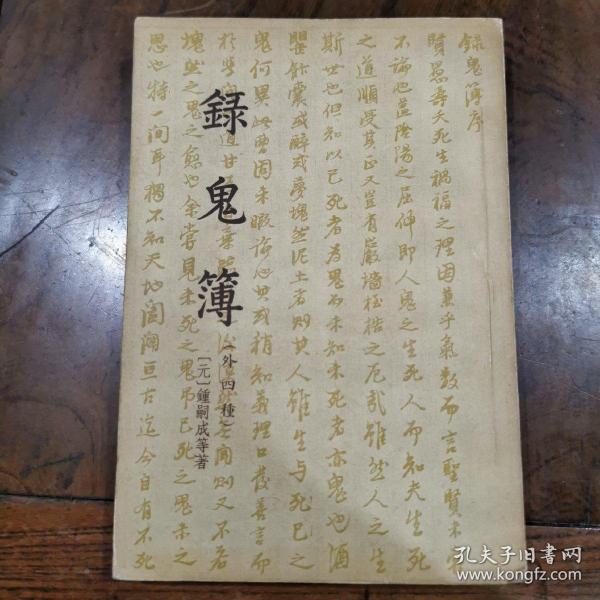 錄鬼簿
(外四種)
〔元〕鍾嗣成等著
錄鬼簿序
賢愚壽夭死生禍福之理固兼乎氣數而言聖賢未
不論也蓋陰陽之屈伸即人鬼之生死人而知夫生死
之道順受其正又豈有巖墻桎梏之厄哉雖然人之生
斯世也但知以已死者為鬼而未知未死者亦鬼也酒
罌飯囊或醉或夢塊然泥土者則其人雖生與已死之
鬼何異此曹固未暇論也其或稍知義理口發善言而
於學問之道甘
塊然之鬼之愈也余嘗見未死之鬼弔已死之鬼未之
思也特一間耳獨不知天地闔闢亘古迄今自有不死
孔夫子旧书网
www.kongfz.com